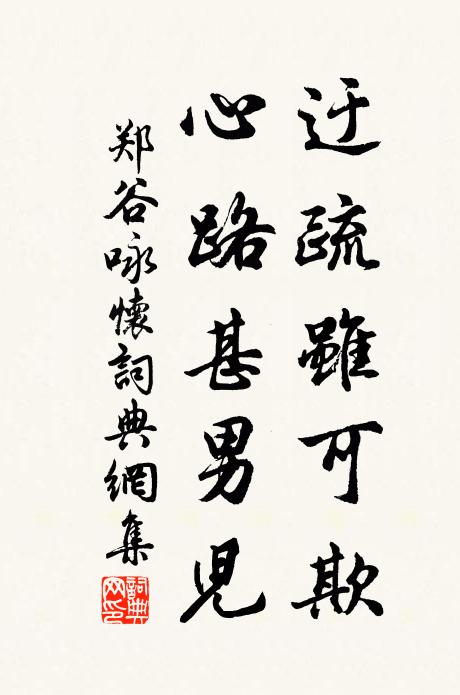 迂疏雖可欺
心路甚男児
郑谷咏懷詞典網集
詞典网印